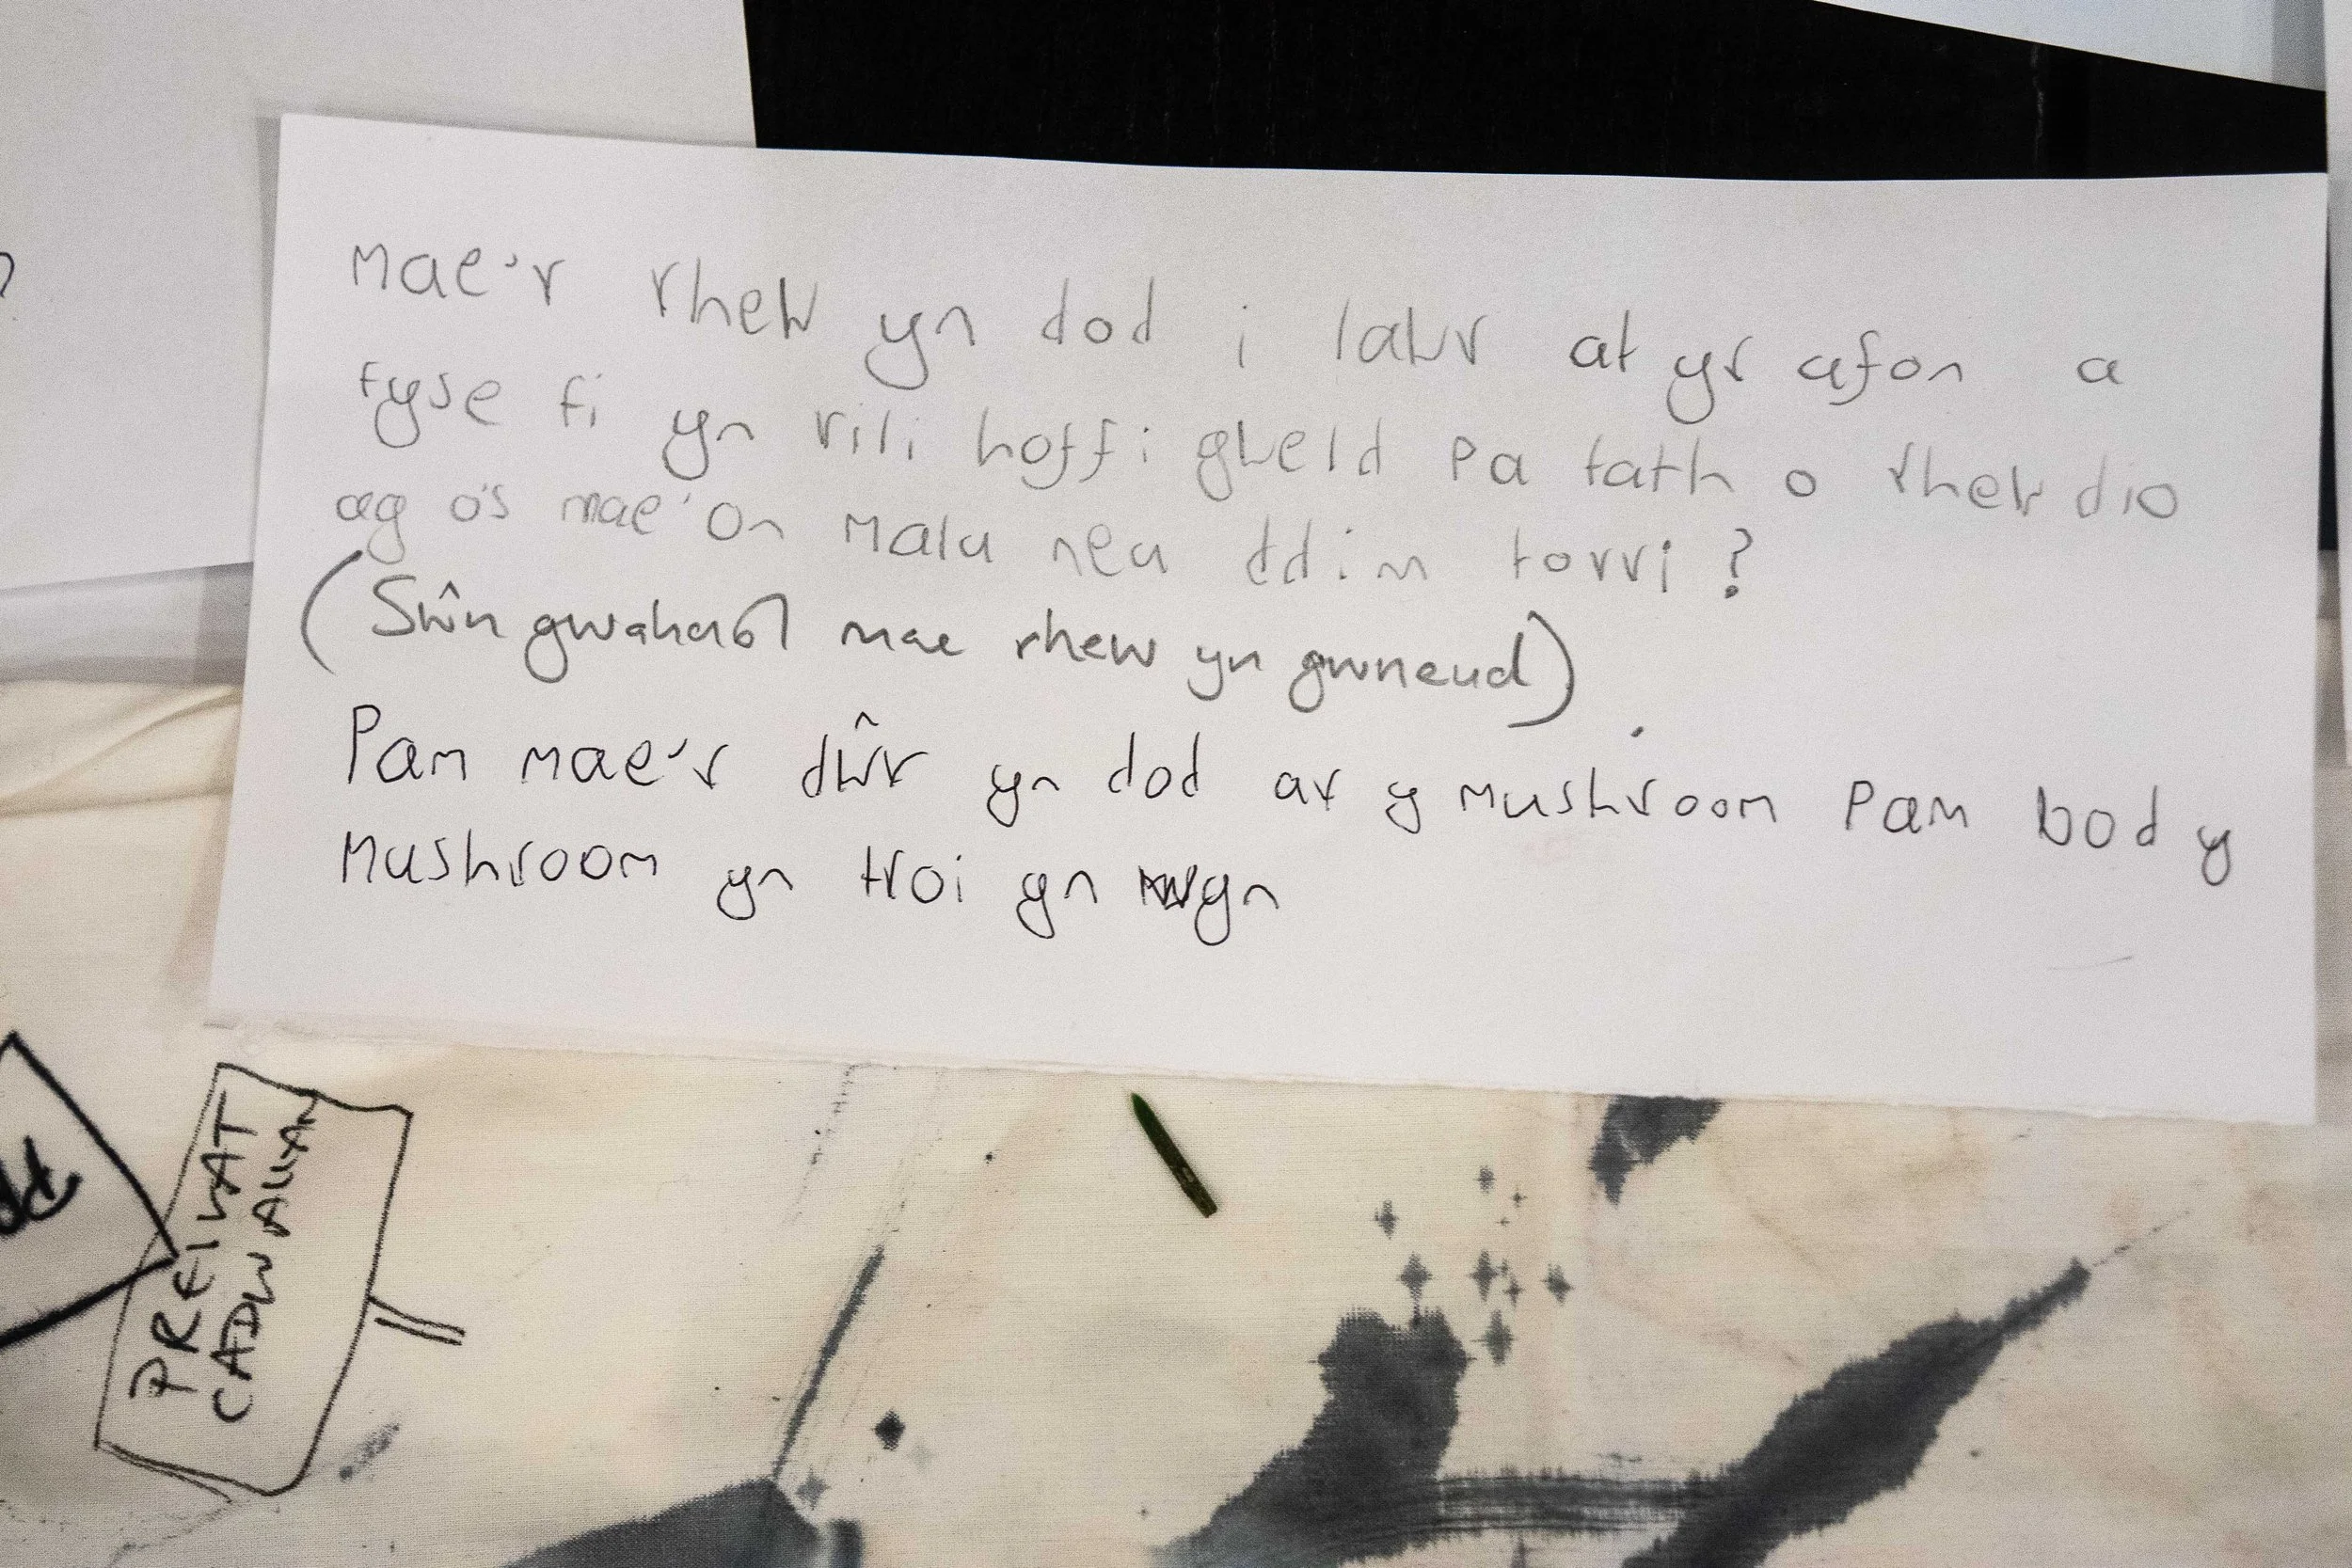 Mae'r rhew yn dod i lawr at yr afon a
fyse fi yn rili hoffi gweld pa fath o rhewdio
ag os mae'on malu neu ddim torri?
(Sŵn gwahanol mae rhew yn gwneud).
Pam mae'r dŵr yn dod ar y mushroom Pam bod y
Mushroom yn troi yn wyn
PREIVAT
CADW ALLAN